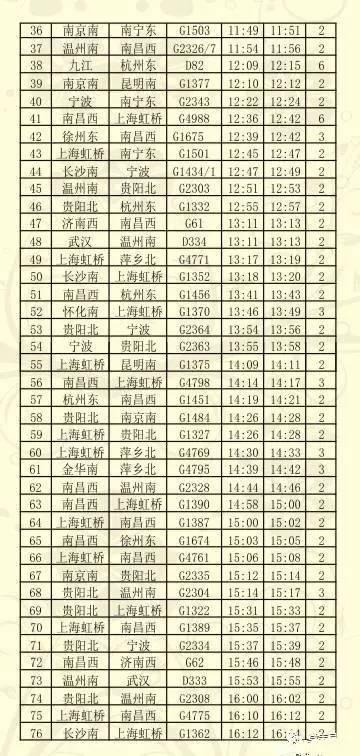 36 南京南 南宁东 G1503 11:49 11:51 2
37 温州南 南昌西 G2326/7 11:54 11:56 2
38 九江 杭州东 D82 12:09 12:15 6
39 南京南 昆明南 G1377 12:10 12:12 2
40 宁波 南宁东 G2343 12:22 12:24 2
41 南昌西 上海虹桥 G4988 12:36 12:42 6
42 徐州东 南昌西 G1675 12:39 12:42 3
43 上海虹桥 南宁东 G1501 12:45 12:47 2
44 长沙南 宁波 G1434/1 12:47 12:49 2
45 温州南 贵阳北 G2303 12:51 12:53 2
46 贵阳北 杭州东 G1332 12:55 12:57 2
47 济南西 南昌西 G61 13:11 13:13 2
48 武汉 温州南 D334 13:11 13:13 2
49 上海虹桥 萍乡北 G4771 13:17 13:19 2
50 长沙南 上海虹桥 G1352 13:18 13:20 2
51 南昌西 杭州东 G1456 13:41 13:43 2
52 怀化南 上海虹桥 G1370 13:46 13:49 3
53 贵阳北 宁波 G2364 13:54 13:56 2
54 宁波 贵阳北 G2363 13:55 13:58 2
55 上海虹桥 昆明南 G1375 14:09 14:11 2
56 南昌西 上海虹桥 G4798 14:14 14:17 3
57 杭州东 南昌西 G1451 14:19 14:21 2
58 贵阳北 南京南 G1484 14:26 14:28 2
59 上海虹桥 贵阳北 G1327 14:26 14:28 2
60 上海虹桥 萍乡北 G4769 14:30 14:33 3
61 金华南 萍乡北 G4795 14:39 14:42 3
62 南昌西 温州南 G2328 14:44 14:46 2
63 南昌西 上海虹桥 G1390 14:58 15:00 2
64 上海虹桥 南昌西 G1387 15:00 15:02 2
65 南昌西 徐州东 G1674 15:03 15:05 2
66 上海虹桥 南昌西 G4761 15:06 15:08 2
67 南京南 贵阳北 G2335 15:12 15:14 2
68 贵阳北 温州南 G2304 15:14 15:17 3
69 贵阳北 上海虹桥 G1322 15:31 15:33 2
70 上海虹桥 南昌西 G1389 15:35 15:37 2
71 贵阳北 宁波 G2334 15:37 15:39 2
72 南昌西 济南西 G62 15:46 15:48 2
73 温州南 武汉 D333 15:53 15:55 2
74 贵阳北 温州南 G2308 16:00 16:02 2
75 上海虹桥 南昌西 G4775 16:10 16:12 2
76 南昌西 上海虹桥 G1362 16:12